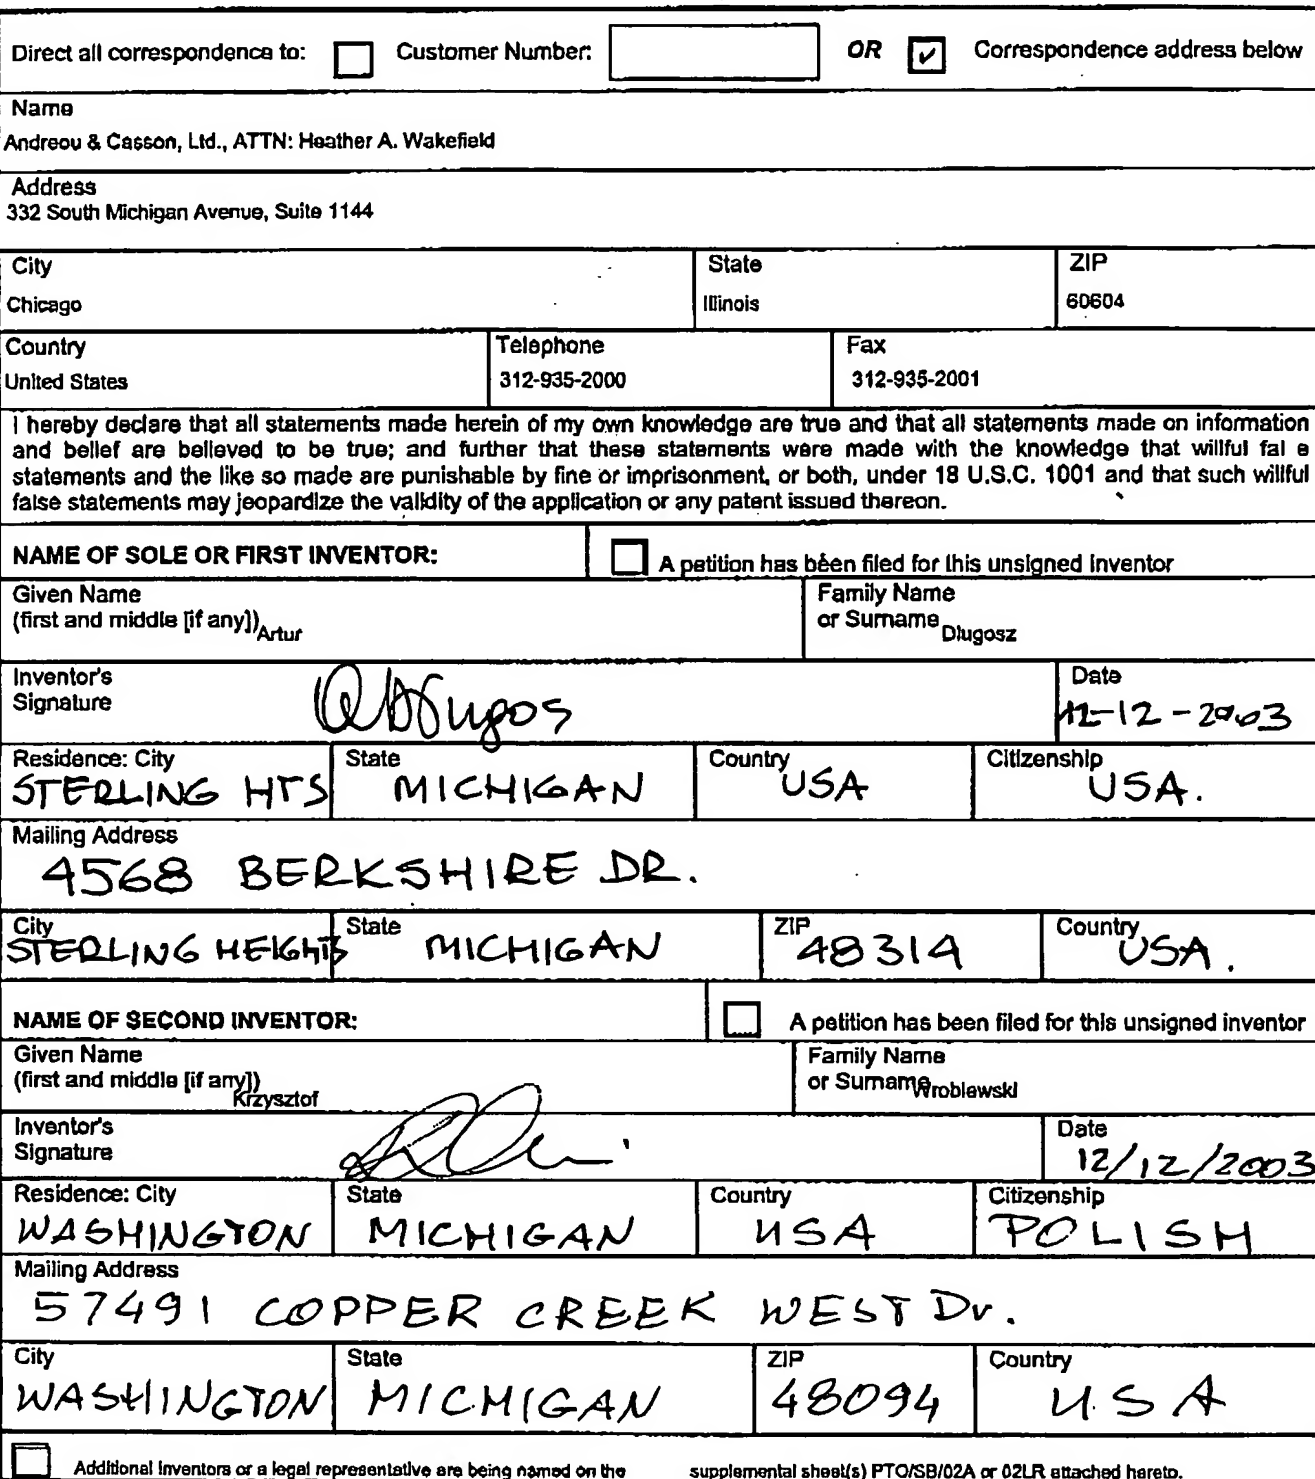 Direct all correspondence to: Customer Number: OR ✓ Correspondence address below
Name
Andreou & Casson, Ltd., ATTN: Heather A. Wakefield
Address
332 South Michigan Avenue, Suite 1144
City State ZIP
Chicago Illinois 60604
Country Telephone Fax
United States 312-935-2000 312-935-2001
I hereby declare that all statements made herein of my own knowledge are true and that all statements made on information
and belief are believed to be true; and further that these statements were made with the knowledge that willful fal e
statements and the like so made are punishable by fine or imprisonment, or both, under 18 U.S.C. 1001 and that such willful
false statements may jeopardize the validity of the application or any patent issued thereon.
NAME OF SOLE OR FIRST INVENTOR: A petition has been filed for this unsigned inventor
Given Name Family Name
(first and middle [if any]) Artur or Surname Dlugosz
Inventor's Date
Signature 12-12-2003
Residence: City State Country Citizenship
STERLING HTS MICHIGAN USA USA.
Mailing Address
4568 BERKSHIRE DR.
City State ZIP Country
STERLING HEIGHTS MICHIGAN 48314 USA.
NAME OF SECOND INVENTOR: A petition has been filed for this unsigned inventor
Given Name Family Name
(first and middle [if any]) Krzysztof or Surname Wroblewski
Inventor's Date
Signature 12/12/2003
Residence: City State Country Citizenship
WASHINGTON MICHIGAN USA POLISH
Mailing Address
57491 COPPER CREEK WEST Dr.
City State ZIP Country
WASHINGTON MICHIGAN 48094 U.S A
Additional inventors or a legal representative are being named on the supplemental sheet(s) PTO/SB/02A or 02LR attached hereto.